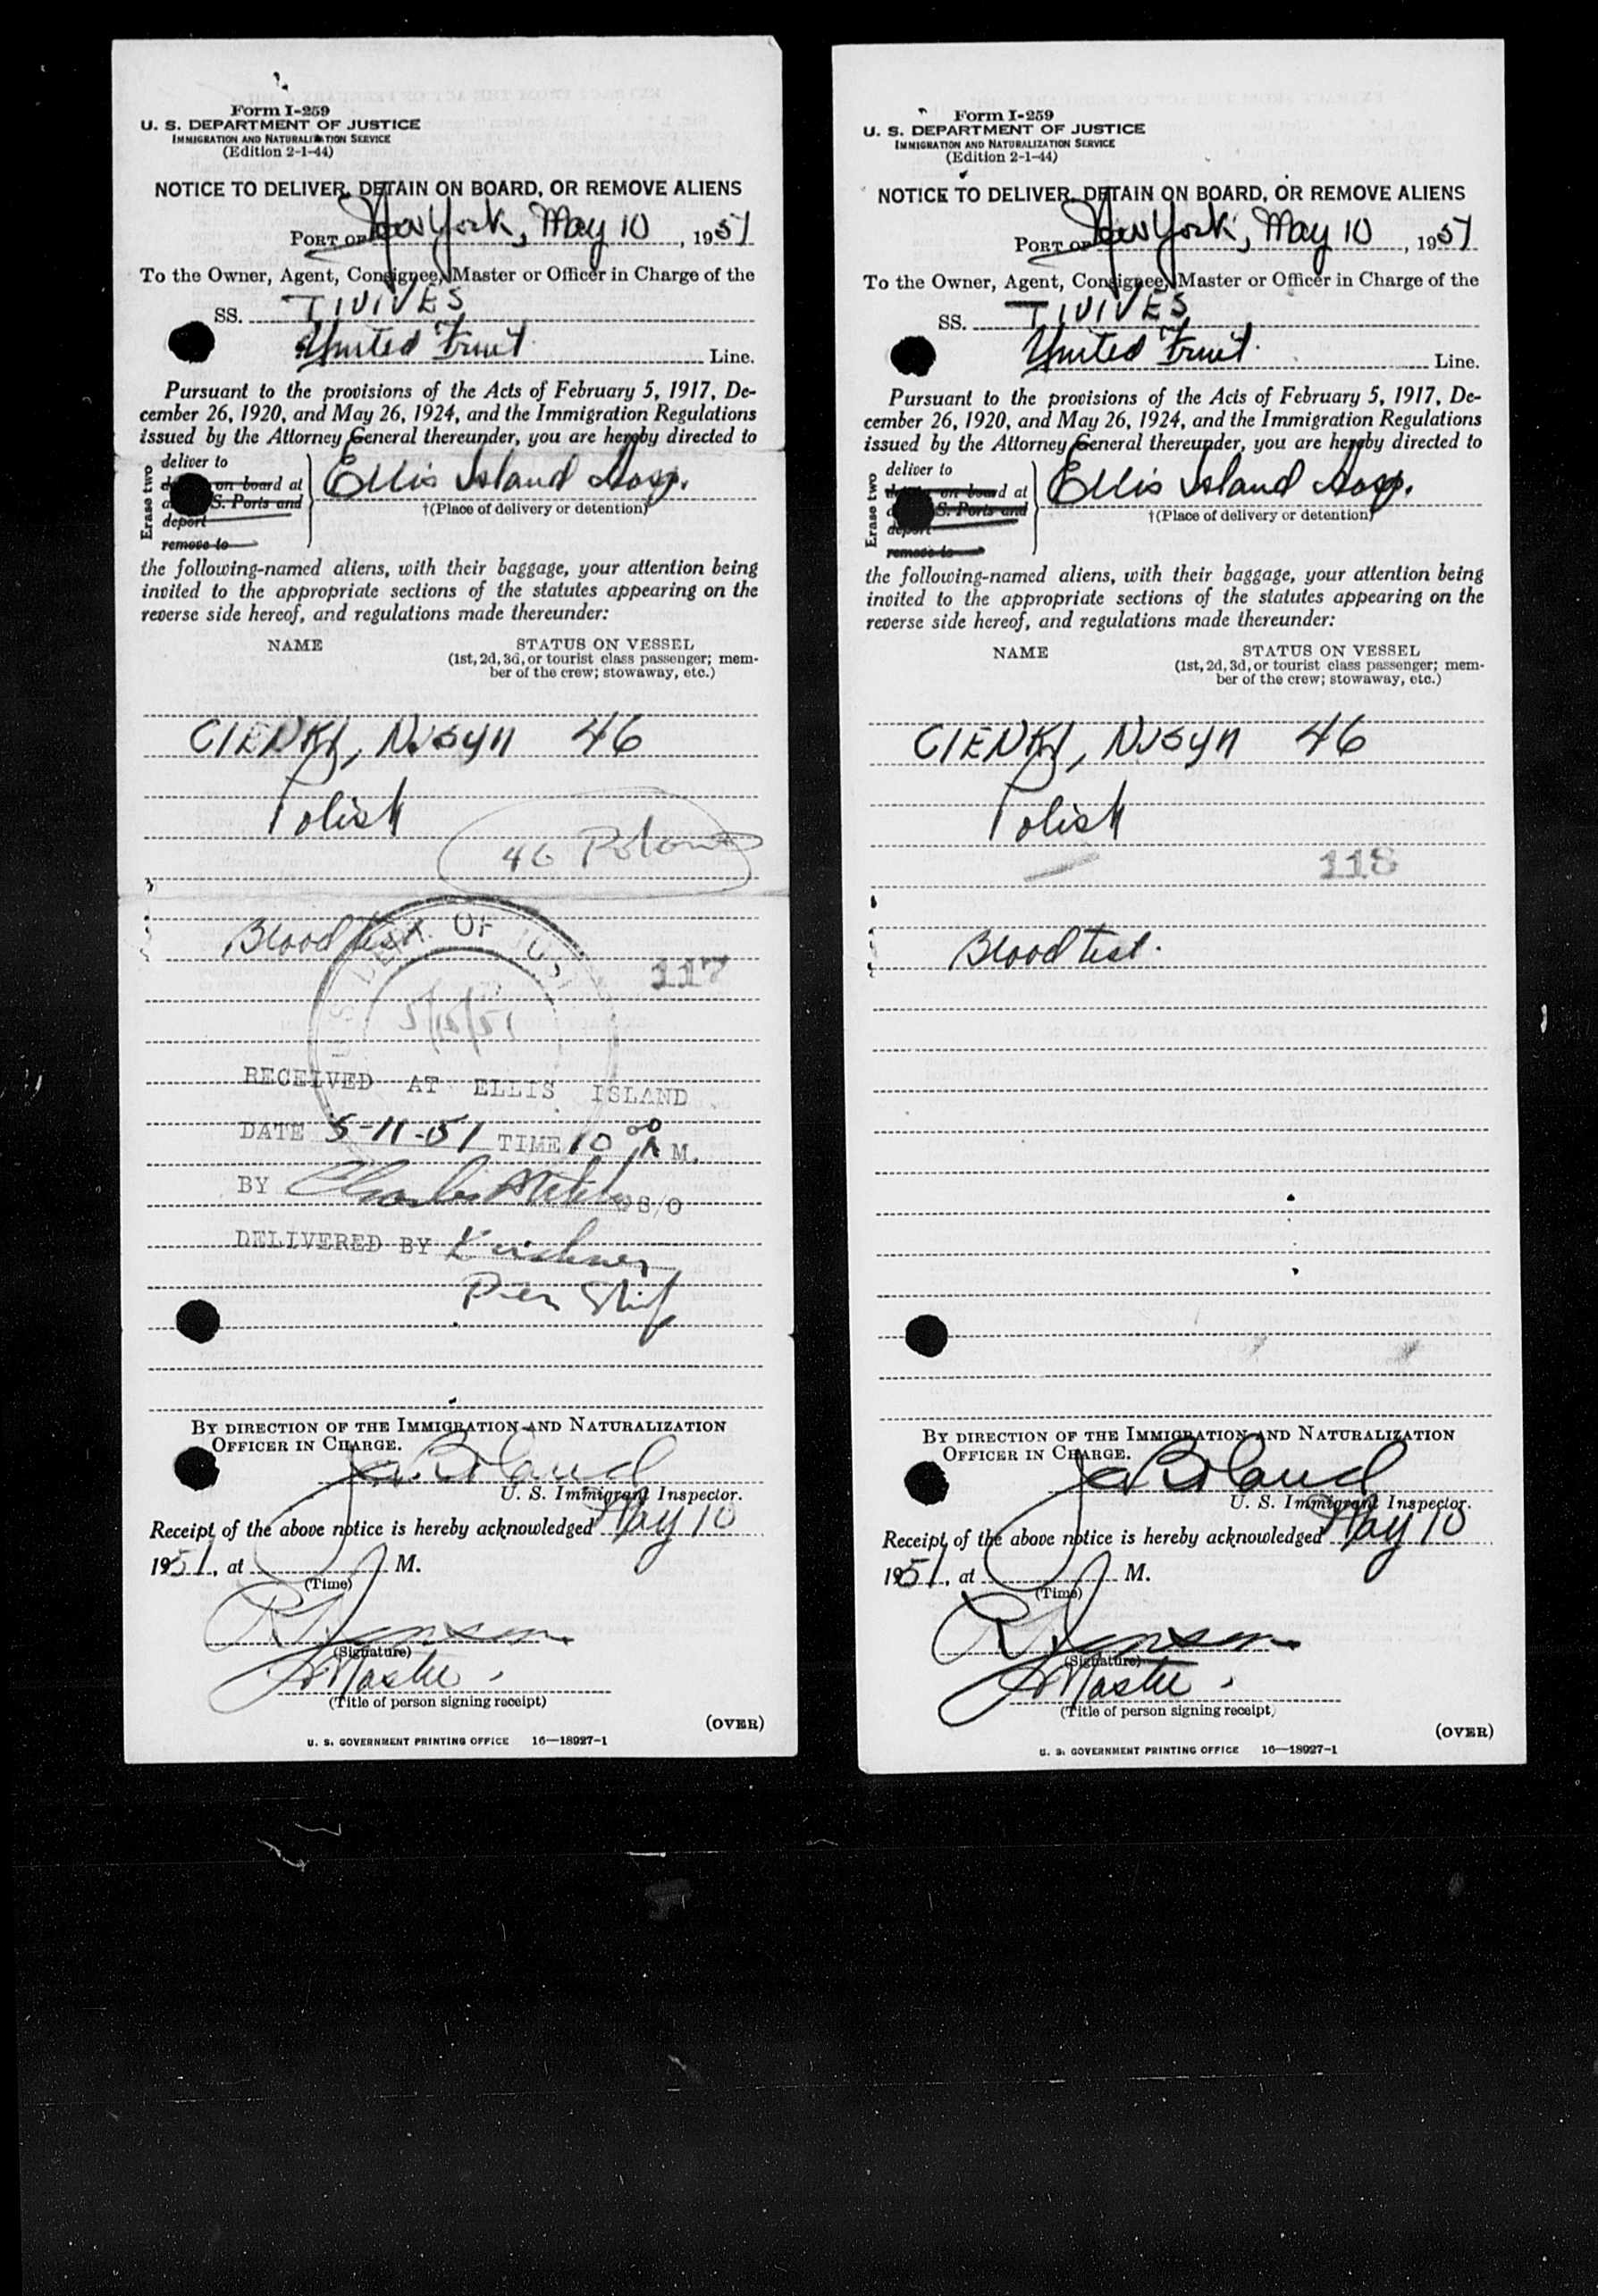 Form I-259
U. S. DEPARTMENT OF JUSTICE
IMMIGRATION AND NATURALIZATION SERVICE
(Edition 2-1-44)
NOTICE TO DELIVER, DETAIN ON BOARD, OR REMOVE ALIENS
PORT OF New York, May 10, 1951
To the Owner, Agent, Consignee, Master or Officer in Charge of the
SS. TIVIVES
United Fruit Line.
Pursuant to the provisions of the Acts of February 5, 1917, De-
cember 26, 1920, and May 26, 1924, and the Immigration Regulations
issued by the Attorney General thereunder, you are hereby directed to
Erase two
deliver to
on board at
S. Ports and
deport
remove to
Ellis Island Hosp.
†(Place of delivery or detention)
the following-named aliens, with their baggage, your attention being
invited to the appropriate sections of the statutes appearing on the
reverse side hereof, and regulations made thereunder:
NAME STATUS ON VESSEL
(1st, 2d, 3d, or tourist class passenger; mem-
ber of the crew; stowaway, etc.)
CIENKI, 46
Polish
46
Blood test.
117
5/10/51
RECEIVED AT ELLIS ISLAND
DATE 5-11-51 TIME 10 00 A M.
BY Charles S/O
DELIVERED BY
Pier
BY DIRECTION OF THE IMMIGRATION AND NATURALIZATION
OFFICER IN CHARGE.
U. S. Immigrant Inspector.
Receipt of the above notice is hereby acknowledged May 10
1951, at M.
(Time)
(Signature)
Master
(Title of person signing receipt)
(OVER)
U. S. GOVERNMENT PRINTING OFFICE 16—18927-1
Form I-259
U. S. DEPARTMENT OF JUSTICE
IMMIGRATION AND NATURALIZATION SERVICE
(Edition 2-1-44)
NOTICE TO DELIVER, DETAIN ON BOARD, OR REMOVE ALIENS
PORT OF New York, May 10, 1951
To the Owner, Agent, Consignee, Master or Officer in Charge of the
SS. TIVIVES
United Fruit. Line.
Pursuant to the provisions of the Acts of February 5, 1917, De-
cember 26, 1920, and May 26, 1924, and the Immigration Regulations
issued by the Attorney General thereunder, you are hereby directed to
Erase two
deliver to
on board at
S. Ports and
deport
remove to
Ellis Island Hosp.
†(Place of delivery or detention)
the following-named aliens, with their baggage, your attention being
invited to the appropriate sections of the statutes appearing on the
reverse side hereof, and regulations made thereunder:
NAME STATUS ON VESSEL
(1st, 2d, 3d, or tourist class passenger; mem-
ber of the crew; stowaway, etc.)
CIENKI, 46
Polish
118
Blood test.
BY DIRECTION OF THE IMMIGRATION AND NATURALIZATION
OFFICER IN CHARGE.
U. S. Immigrant Inspector.
Receipt of the above notice is hereby acknowledged May 10
1951, at M.
(Time)
(Signature)
Master
(Title of person signing receipt)
(OVER)
U. S. GOVERNMENT PRINTING OFFICE 16—18927-1